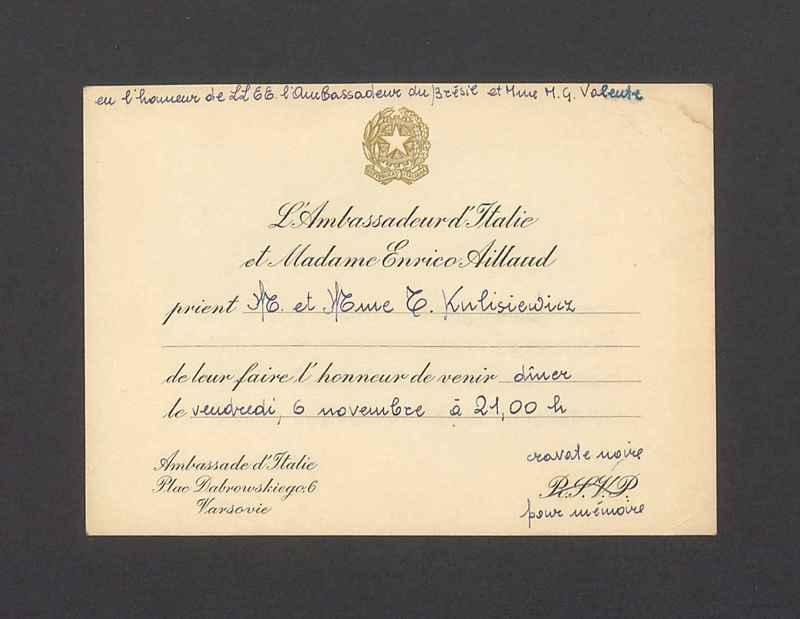 en l'honneur de LL EE. l'Ambassadeur du Brésil et Mme M. G. Valente
L'Ambassadeur d'Italie
et Madame Enrico Aillaud
prient M. et Mme T. Kulisiewicz
de leur faire l'honneur de venir dîner
le vendredi, 6 novembre à 21,00 h
Ambassade d'Italie
Plac Dabrowskiego, 6
Varsovie
cravate noire
R.S.V.P.
pour mémoire